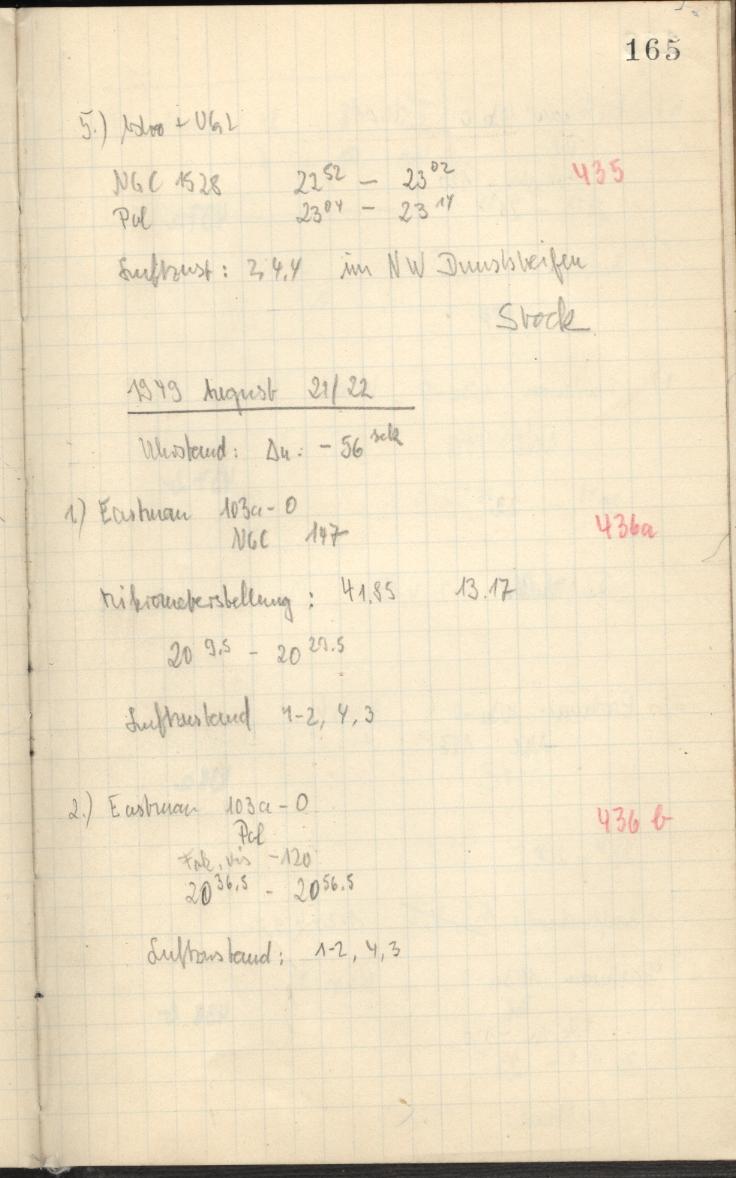 165
5.) Astro + UG2
NGC 1528 22⁵² – 23⁰² 435
Pol 23⁰⁴ – 23¹⁴
Luftzust: 3,4,4 im NW Dunststreifen
Stock
1949 August 21/22
Uhrstand: Δu: – 56 sek
1) Eastman 103a-O 436a
NGC 147
Mikrometerstellung: 41,85 13.17
20 9.5 – 20 29.5
Luftzustand 1-2, 4, 3
2.) Eastman 103a-O 436 b
Pol
Fok. vis -120
20 36,5 – 20 56.5
Luftzustand: 1-2, 4, 3